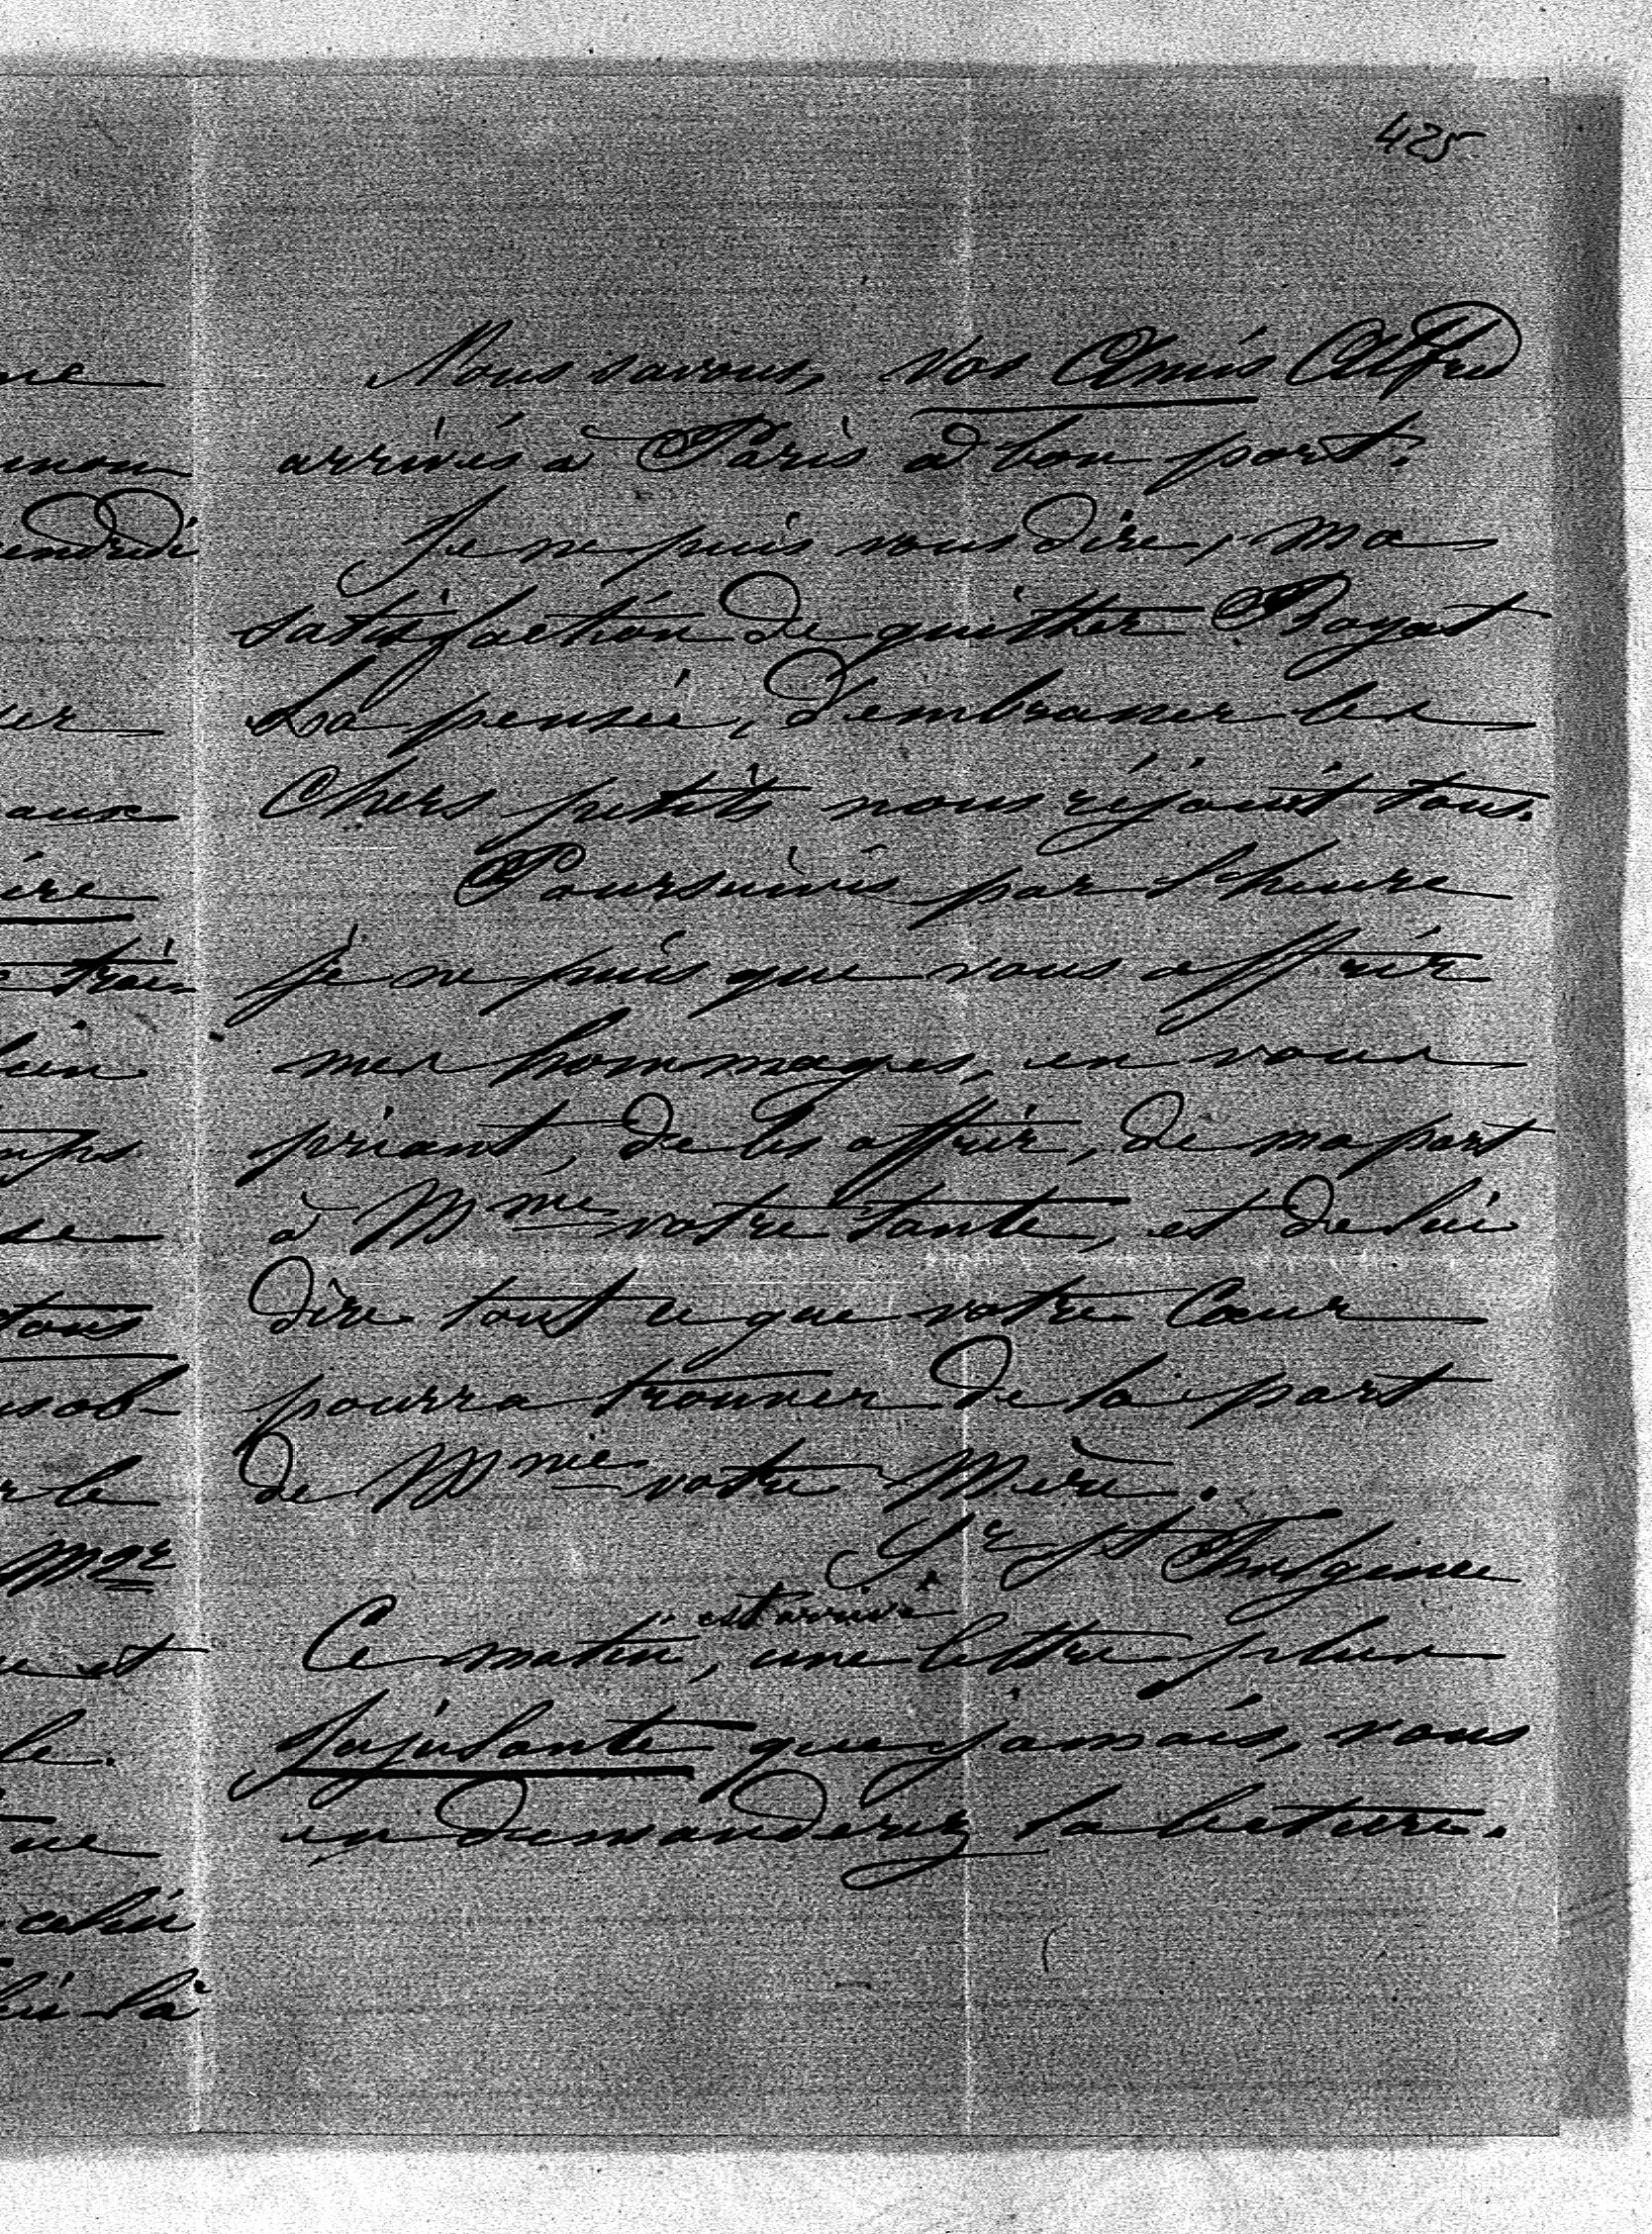 425
Nous savons, Vos Amis Alfred
arrivés à Paris à bon port.
Je ne puis vous dire, ma
satisfaction de quitter Royat
La pensée, d'embrasser les
Chers petits nous réjouit tous.
Poursuivis par l'heure
je ne puis que vous offrir
mes hommages, en vous
priant, de les offrir, de ma part
à Mme votre tante, et de lui
dire tout ce que votre Cœur
pourra trouver de la part
de Mme votre Mère.
Sr St Fulgence
est arrivé
Ce matin, une lettre plus
Jujulante que jamais, vous
en demanderez la lecture.
me
endredi
aux
ire
tous
sob-
r le
Mgr
et
le.